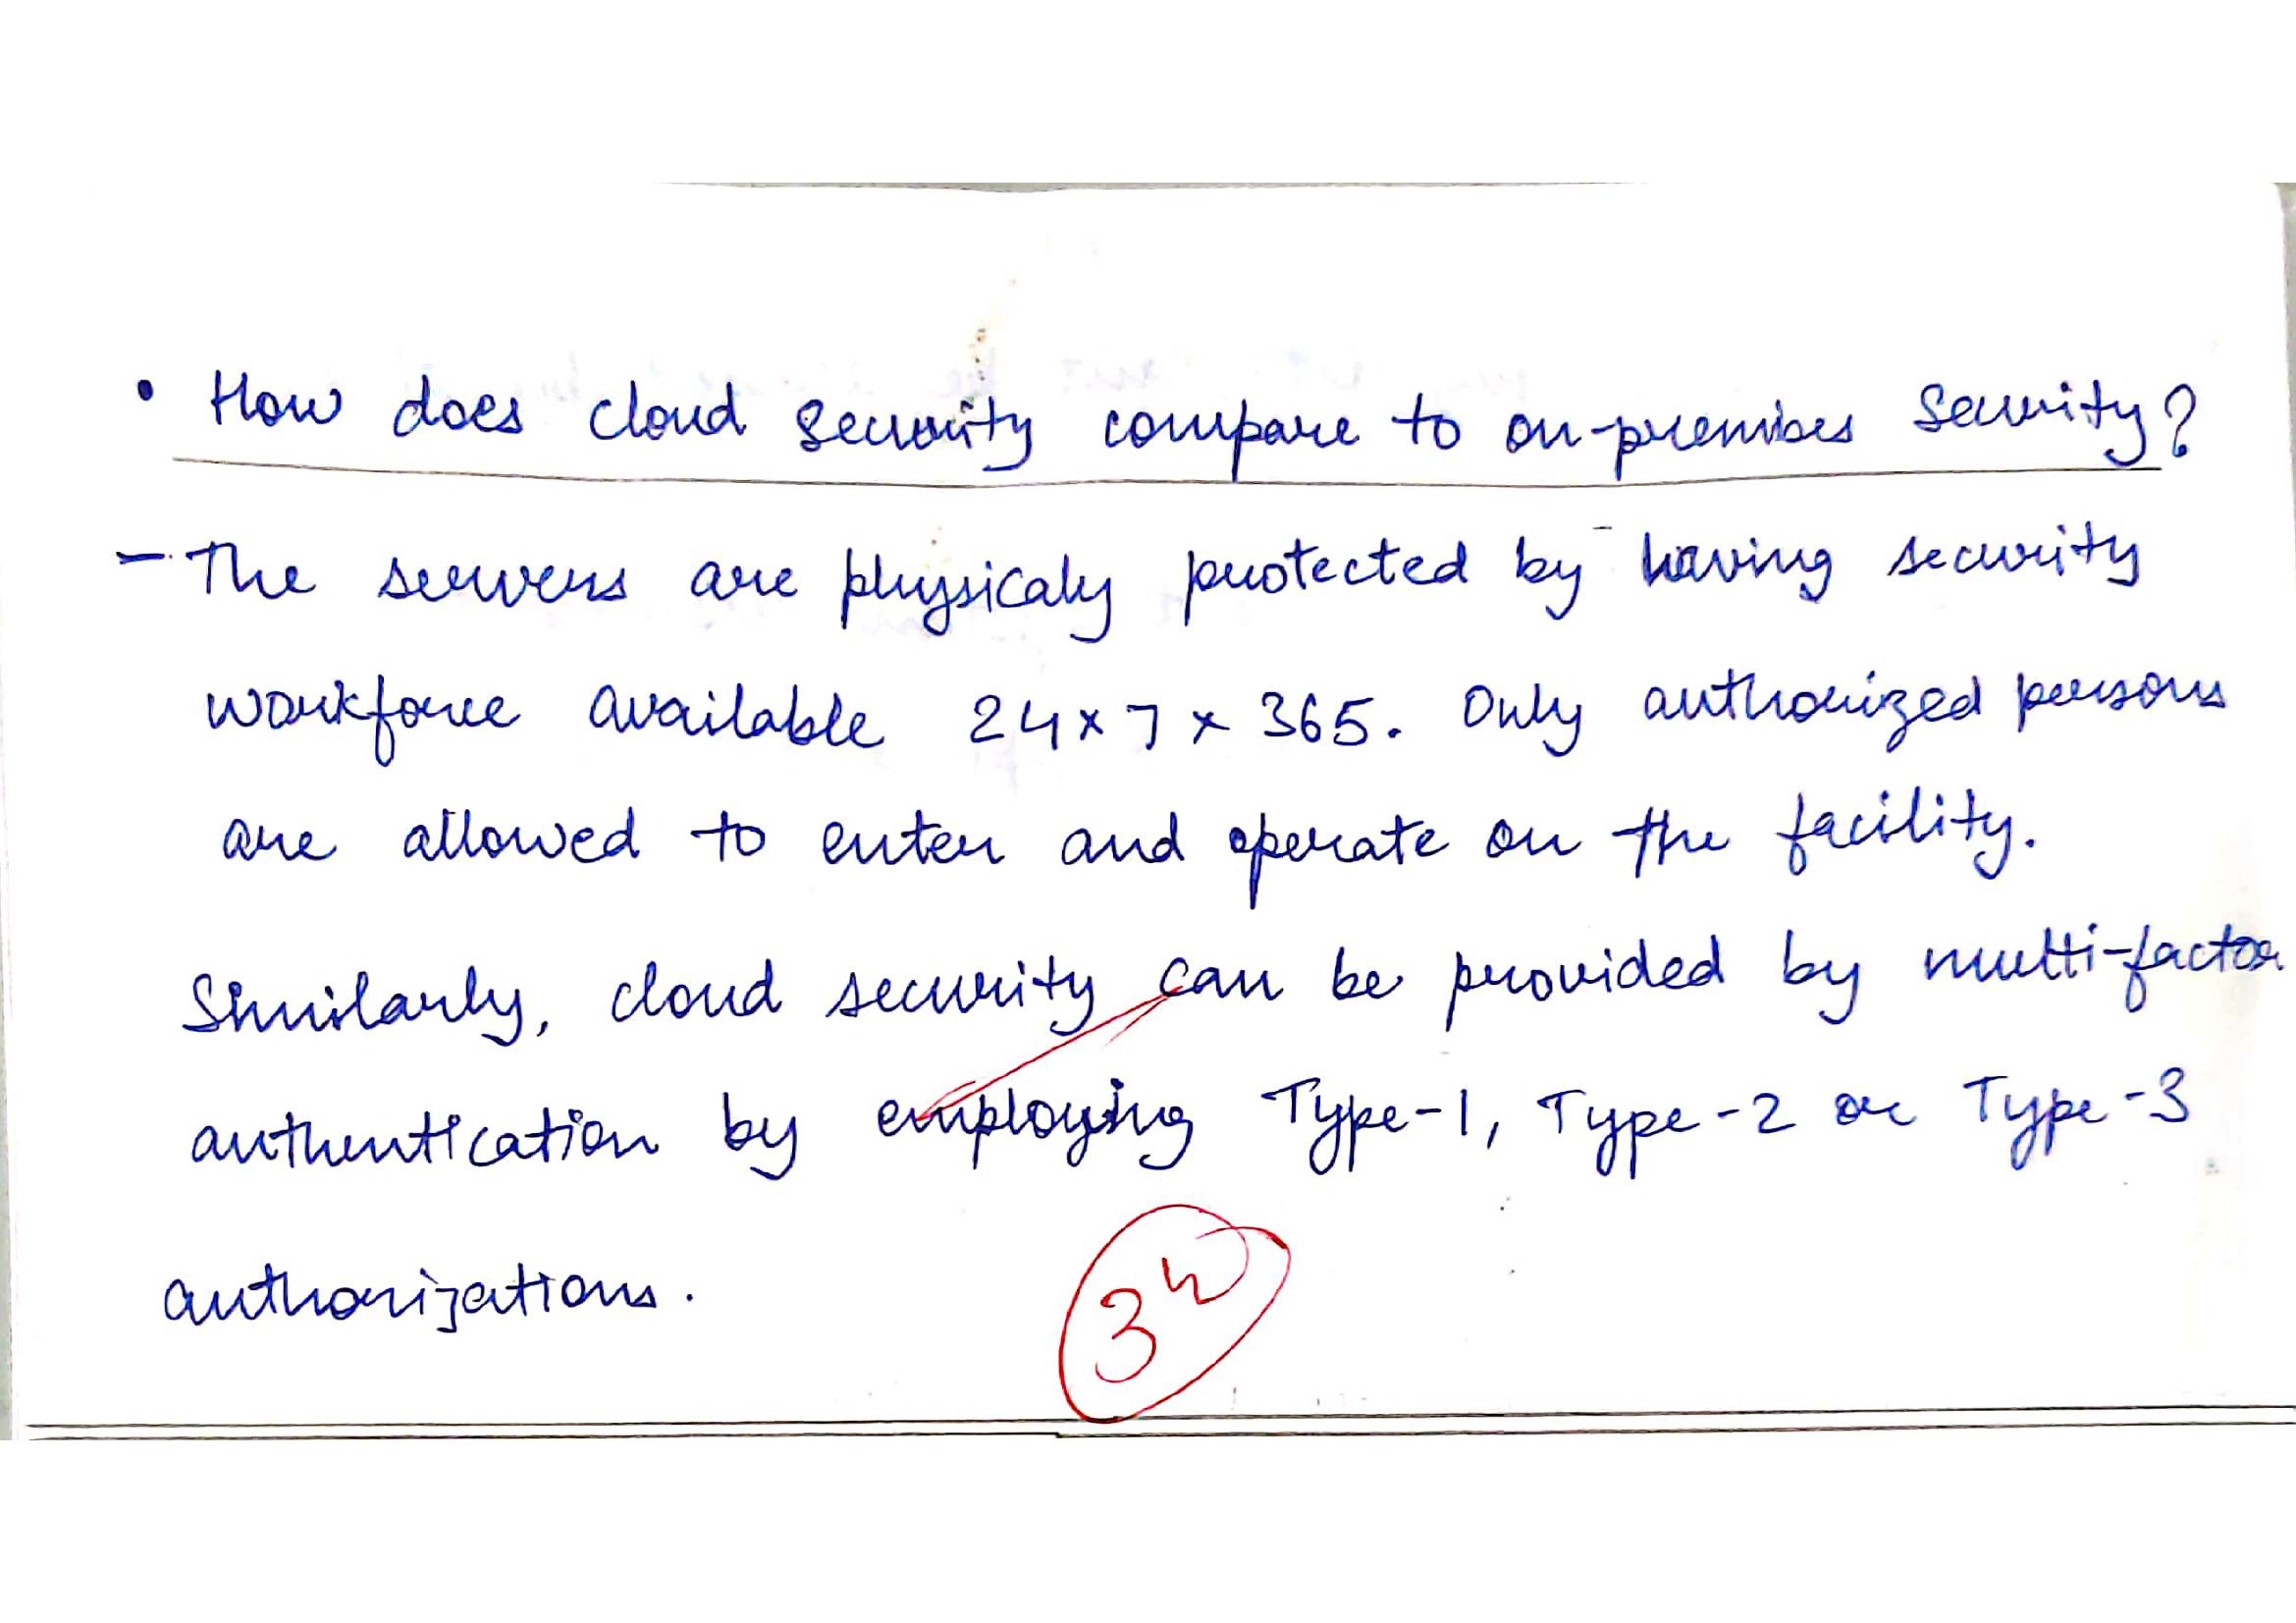 • How does cloud security compare to on-premises security?
- The servers are physicaly protected by having security
workforce available 24x7x365. Only authorized persons
are allowed to enter and operate on the facility.
Similarly, cloud security can be provided by multi-factor
authentication by employing Type-1, Type-2 or Type-3
authorizations.
3